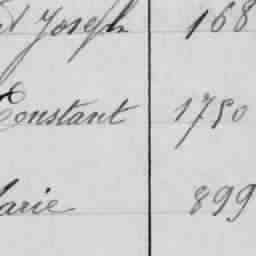 Joseph 168
Constant 1750
arie 899